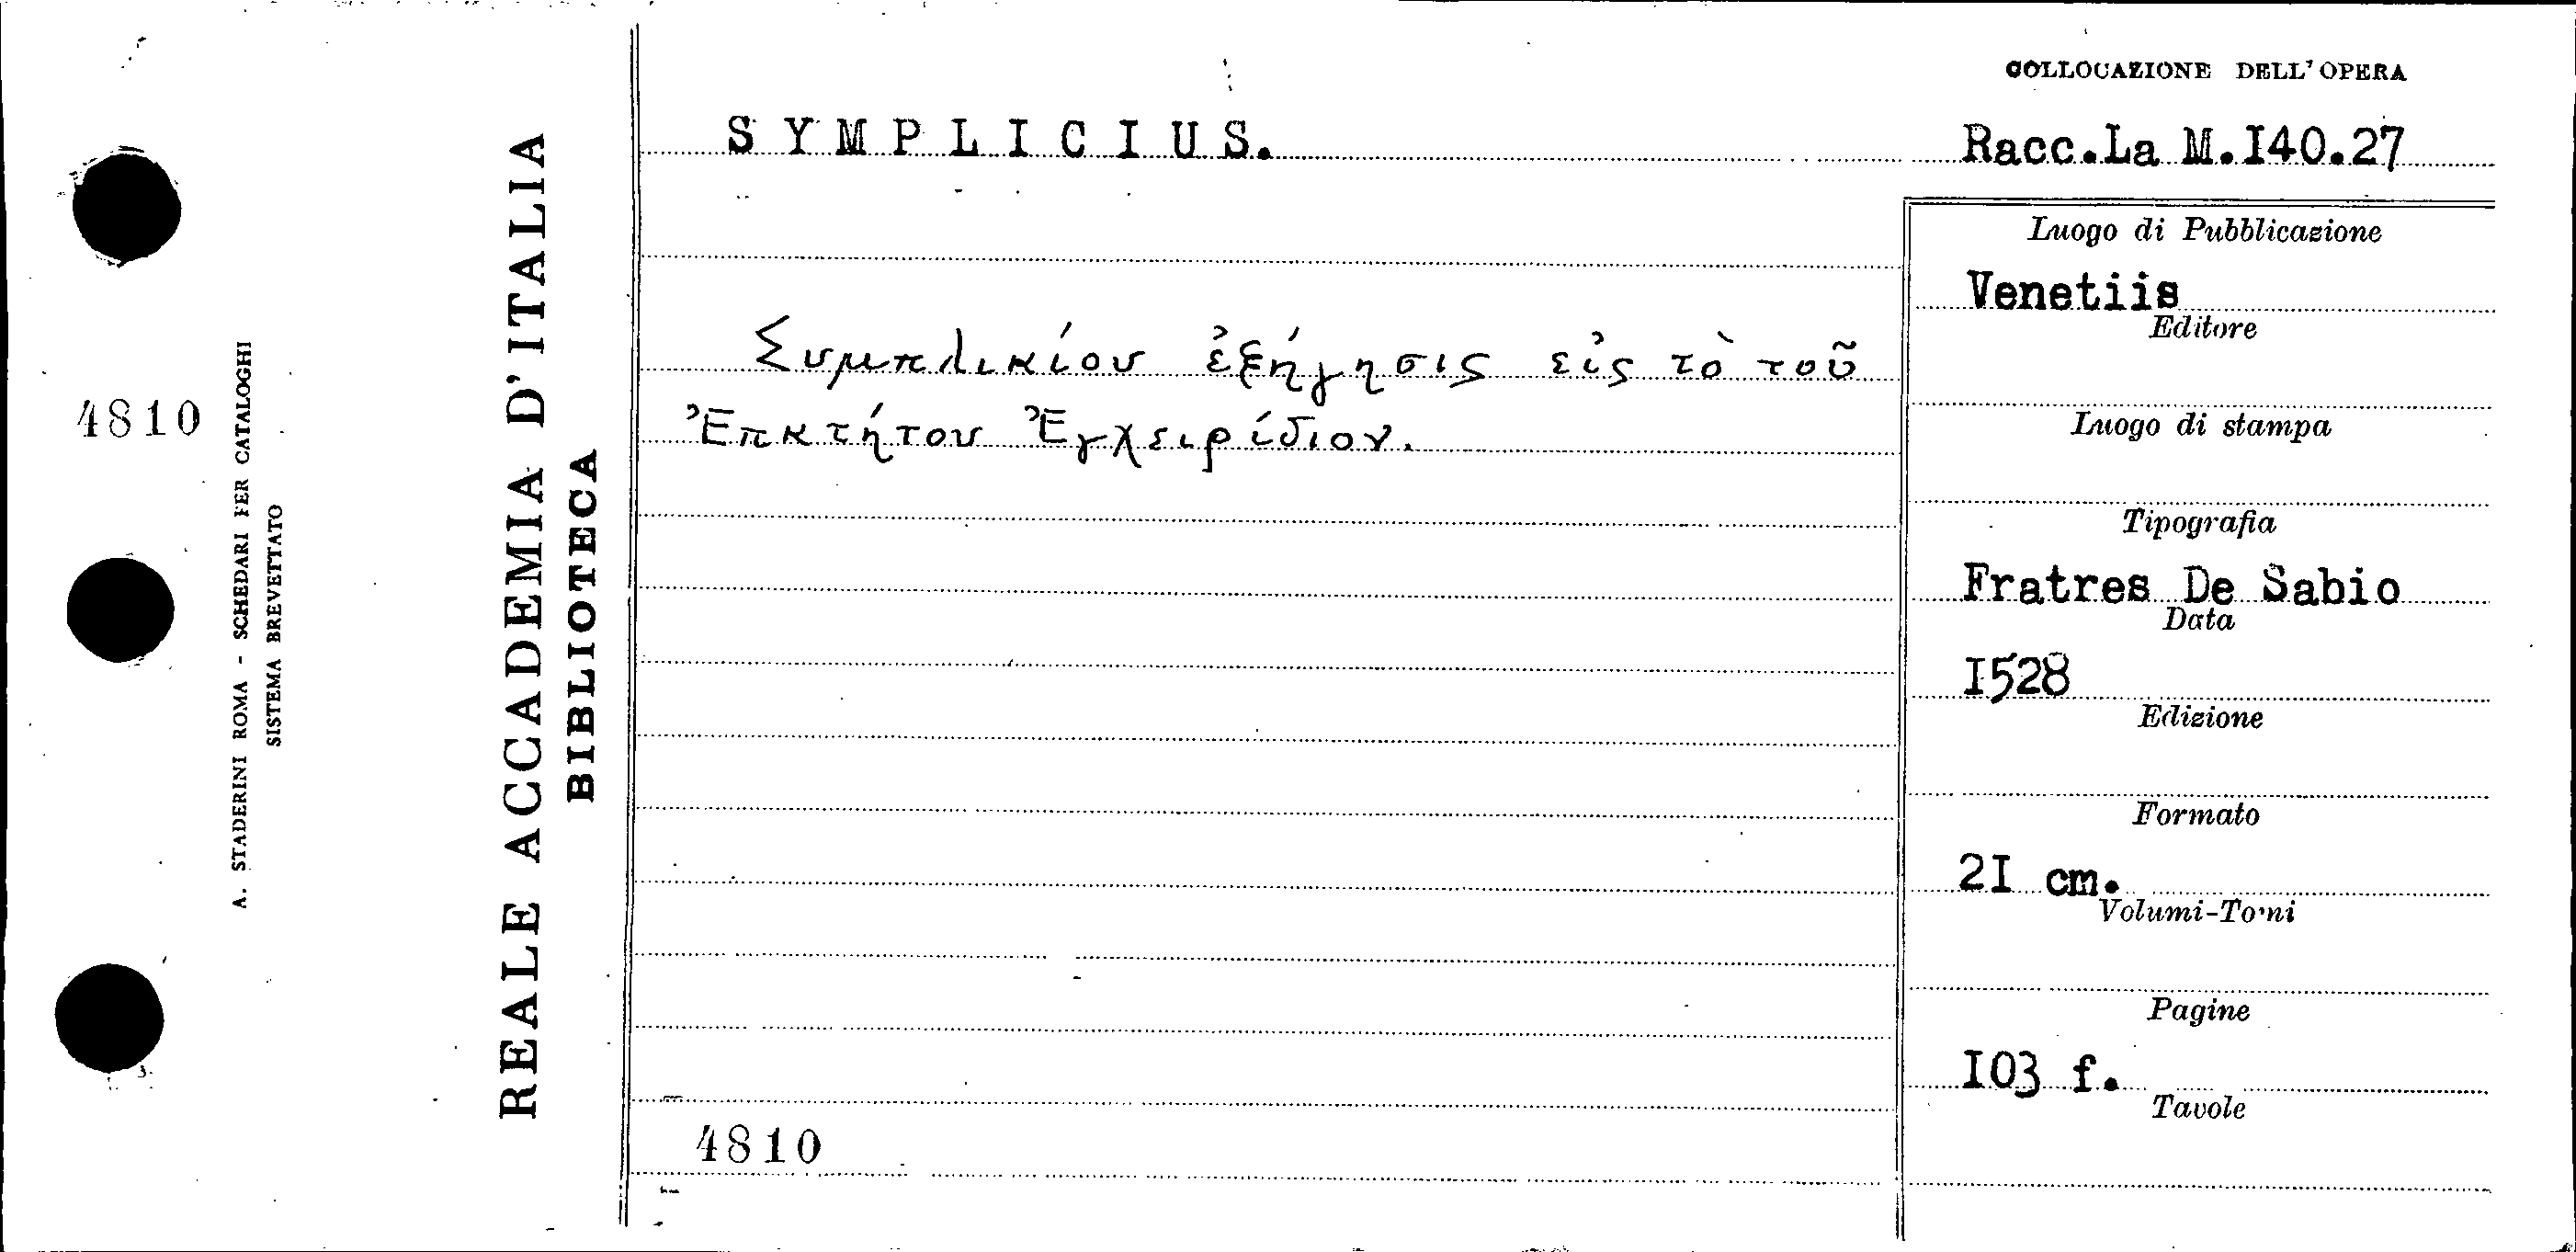 4810
A. STADERINI ROMA - SCHEDARI PER CATALOGHI
SISTEMA BREVETTATO
REALE ACCADEMIA D'ITALIA
BIBLIOTECA
SYMPLICIUS.
Συμπλικίου ἐξήγησις εἰς τὸ τοῦ
Ἐπκτήτου Ἐγχειρίδιον.
4810
COLLOCAZIONE DELL'OPERA
Racc.La M.I40.27
Luogo di Pubblicazione
Venetiis
Editore
Luogo di stampa
Tipografia
Fratres De Sabio
Data
I528
Edizione
Formato
2I cm.
Volumi-Tomi
Pagine
I03 f.
Tavole